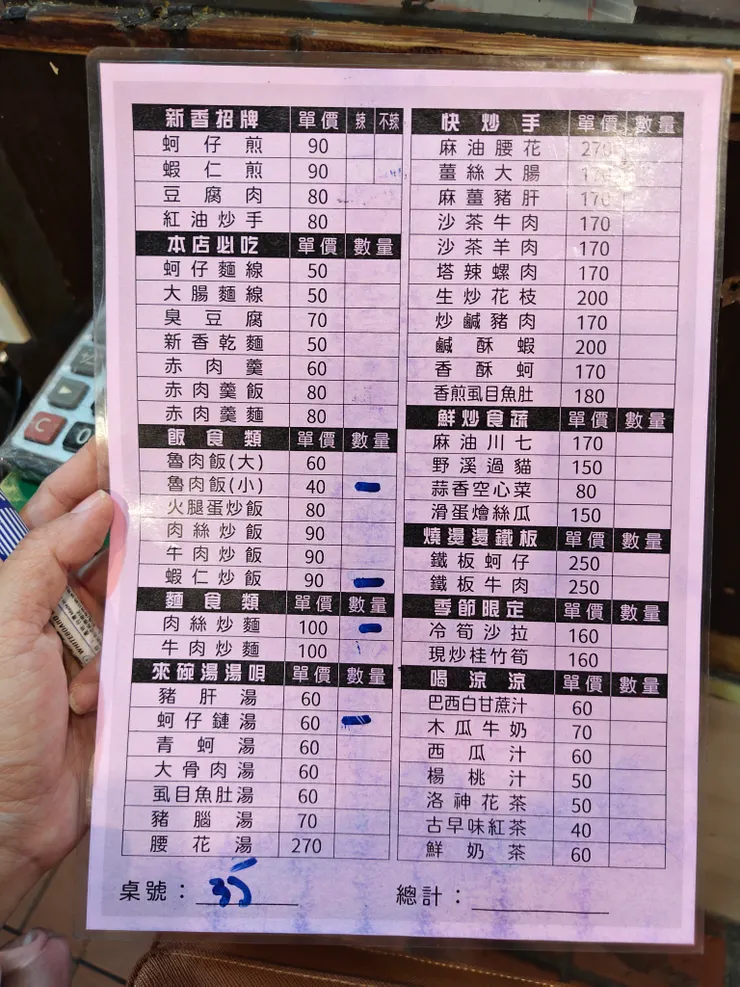 新香招牌 單價 辣 不辣
蚵仔煎 90
蝦仁煎 90
豆腐肉 80
紅油炒手 80
本店必吃 單價 數量
蚵仔麵線 50
大腸麵線 50
臭豆腐 70
新香乾麵 50
赤肉羹 60
赤肉羹飯 80
赤肉羹麵 80
飯食類 單價 數量
魯肉飯(大) 60
魯肉飯(小) 40
火腿蛋炒飯 80
肉絲炒飯 90
牛肉炒飯 90
蝦仁炒飯 90
麵食類 單價 數量
肉絲炒麵 100
牛肉炒麵 100
來碗湯湯唄 單價 數量
豬肝湯 60
蚵仔鏈湯 60
青蚵湯 60
大骨肉湯 60
虱目魚肚湯 60
豬腦湯 70
腰花湯 270
桌號：35
快炒手 單價 數量
麻油腰花 270
薑絲大腸
麻薑豬肝 170
沙茶牛肉 170
沙茶羊肉 170
塔辣螺肉 170
生炒花枝 200
炒鹹豬肉 170
鹹酥蝦 200
香酥蚵 170
香煎虱目魚肚 180
鮮炒食蔬 單價 數量
麻油川七 170
野溪過貓 150
蒜香空心菜 80
滑蛋燴絲瓜 150
燒燙燙鐵板 單價 數量
鐵板蚵仔 250
鐵板牛肉 250
季節限定 單價 數量
冷筍沙拉 160
現炒桂竹筍 160
喝涼涼 單價 數量
巴西白甘蔗汁 60
木瓜牛奶 70
西瓜汁 60
楊桃汁 50
洛神花茶 50
古早味紅茶 40
鮮奶茶 60
總計：
C
WHITEBOARD